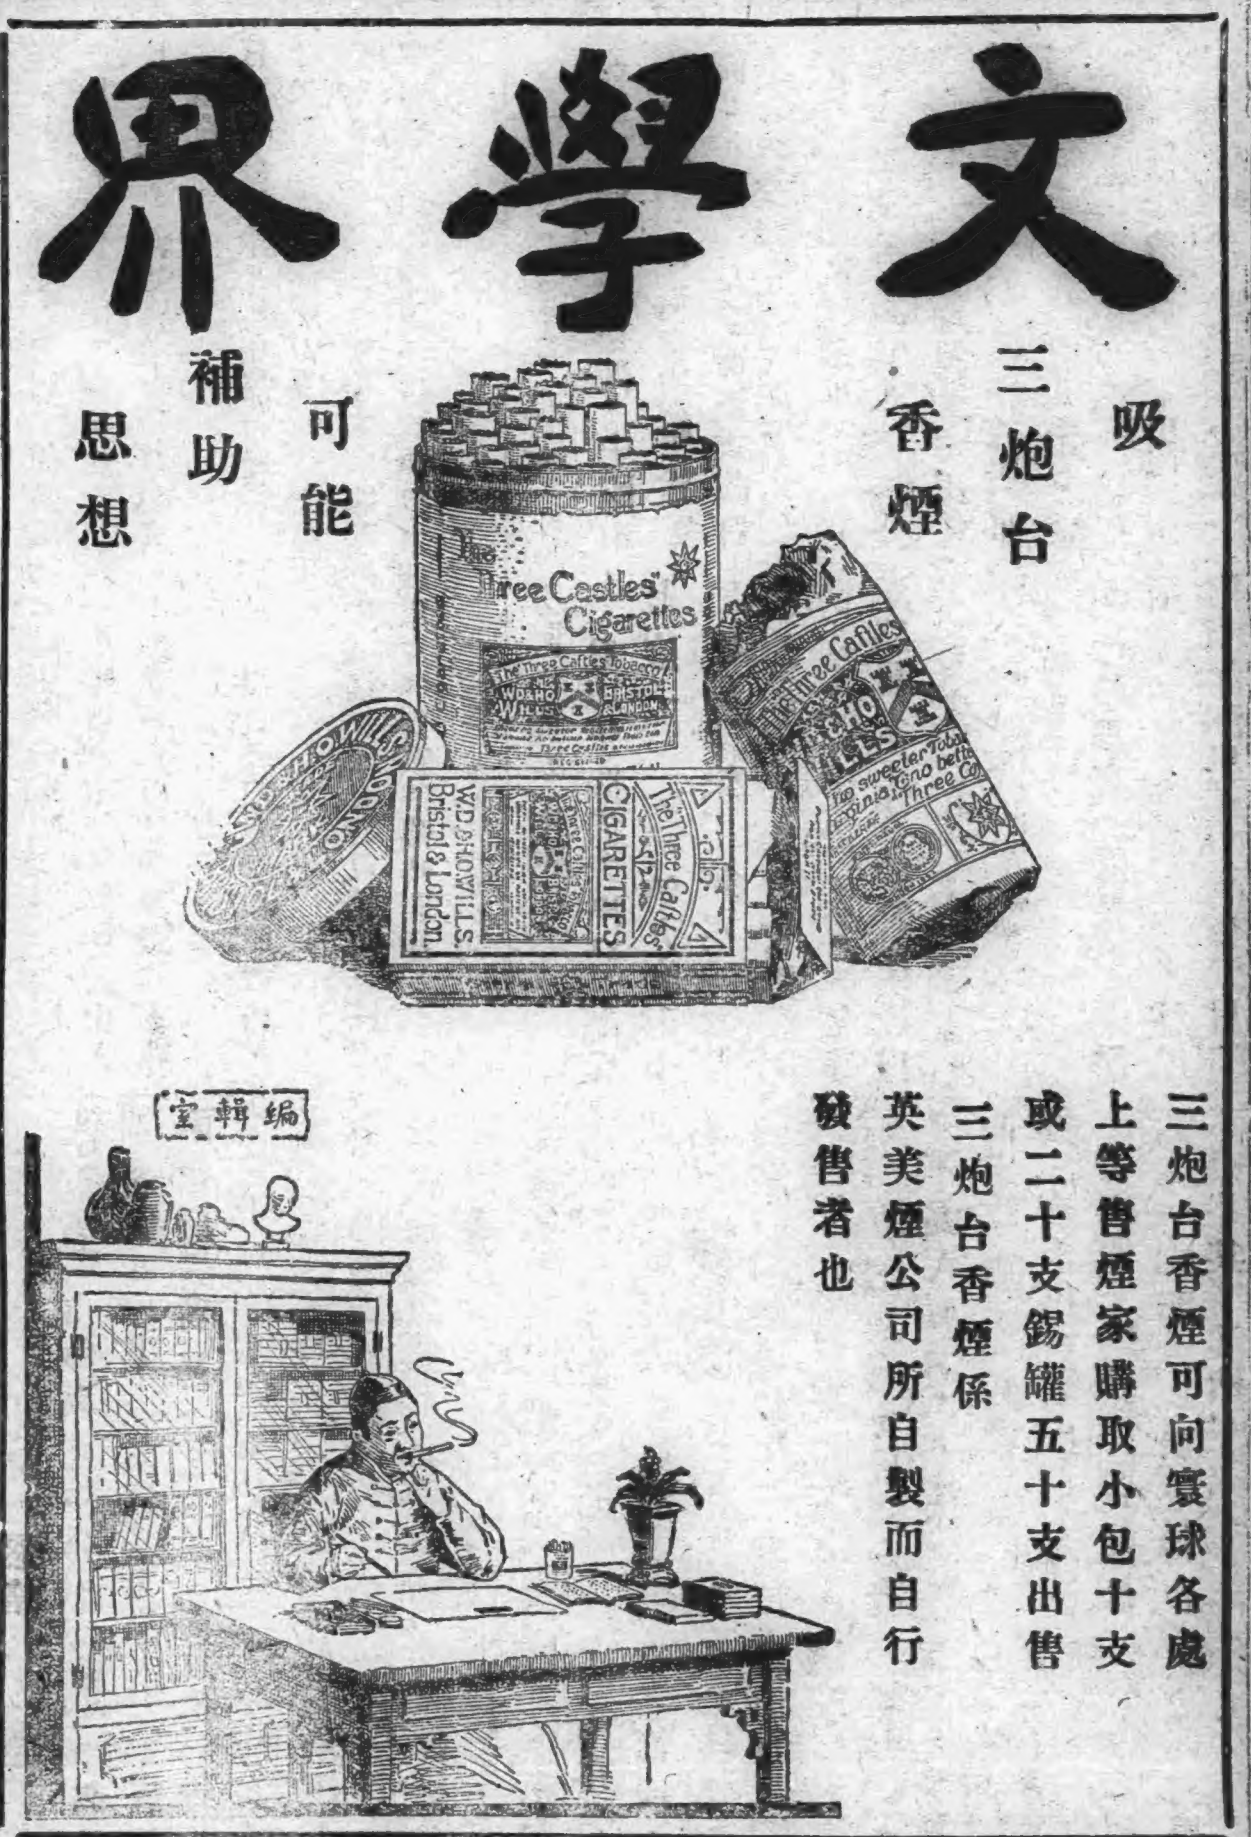 文學界
吸
三炮台
香煙
可能
補助
思想
The
Three Castles"
Cigarettes
The Three Castles Tobacco
W.D.& H.O.
WILLS
BRISTOL
& LONDON
Three Castles
The Three Castles
& HO
LLS
no sweeter Toba
ginia
no bette
Three Ca
"The Three Castles"
CIGARETTES
W.D.& H.O.WILLS.
Bristol & London.
三炮台香煙可向寰球各處
上等售煙家購取小包十支
或二十支錫罐五十支出售
三炮台香煙係
英美煙公司所自製而自行
發售者也
編輯室